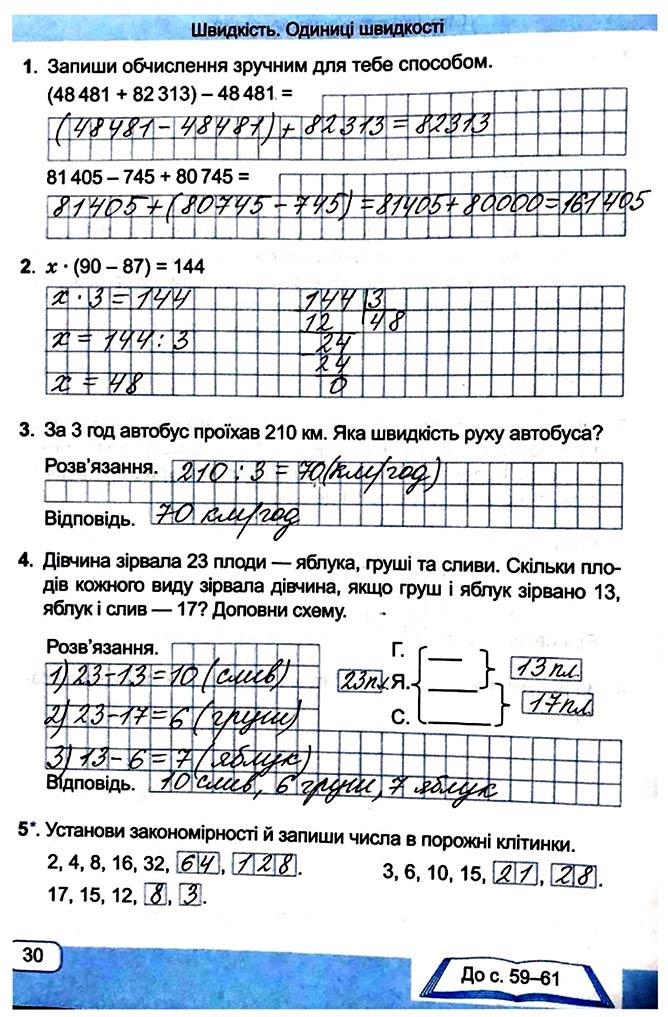 Швидкість. Одиниці швидкості
1. Запиши обчислення зручним для тебе способом.
(48 481 + 82 313) – 48 481 =
(48481 – 48481) + 82313 = 82313
81 405 – 745 + 80 745 =
81405 + (80745 – 745) = 81405 + 80000 = 161405
2. x · (90 – 87) = 144
x · 3 = 144 144 3
12 48
x = 144 : 3 24
24
x = 48 0
3. За 3 год автобус проїхав 210 км. Яка швидкість руху автобуса?
Розв'язання. 210 : 3 = 70 (км/год)
Відповідь. 70 км/год
4. Дівчина зірвала 23 плоди — яблука, груші та сливи. Скільки пло-
дів кожного виду зірвала дівчина, якщо груш і яблук зірвано 13,
яблук і слив — 17? Доповни схему.
Розв'язання.
1) 23 – 13 = 10 (слив)
2) 23 – 17 = 6 (груши)
3) 13 – 6 = 7 (яблук)
Г.
23пл. Я.
С.
13 пл.
17 пл.
Відповідь. 10 слив, 6 груши, 7 яблук
5*. Установи закономірності й запиши числа в порожні клітинки.
2, 4, 8, 16, 32, 64, 128. 3, 6, 10, 15, 21, 28.
17, 15, 12, 8, 3.
30
До с. 59–61